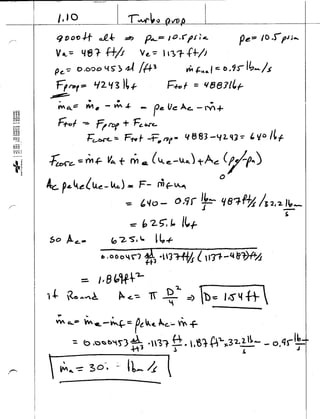 1.10 Turbo prop
9000 ft alt ⇒ pa = 10.5 psia   pe = 10.5 psia
Va = 487 ft/s   Ve = 1137 ft/s
ρe = 0.000453 sl/ft³   ṁfuel = 0.95 lbm/s
Fprop = 4243 lbf   Ftot = 4883 lbf
ṁa = ṁe - ṁf = ρe Ue Ae - ṁf
Ftot = Fprop + Fcore
Fcore = Ftot - Fprop = 4883 - 4243 = 640 lbf
Fcore = ṁf Va + ṁe (Ue - Ua) + Ae (pe - pa) 0
Ae ρe Ue (Ue - Ua) = F - ṁf Ua
= 640 - 0.95 lbm/s 487 ft/s / 32.2 lbm/s
= 625.6 lbf
So Ae = 625.6 lbf
0.000453 sl/ft³ · 1137 ft/s (1137 - 487) ft/s
= 1.869 ft²
If Round Ae = π D²/4 ⇒ D = 1.54 ft
ṁa = ṁe - ṁf = ρe Ue Ae - ṁf
= 0.000453 sl/ft³ · 1137 ft/s · 1.87 ft² × 32.2 lbm/sl - 0.95 lbm/s
ṁa = 30. lbm/s